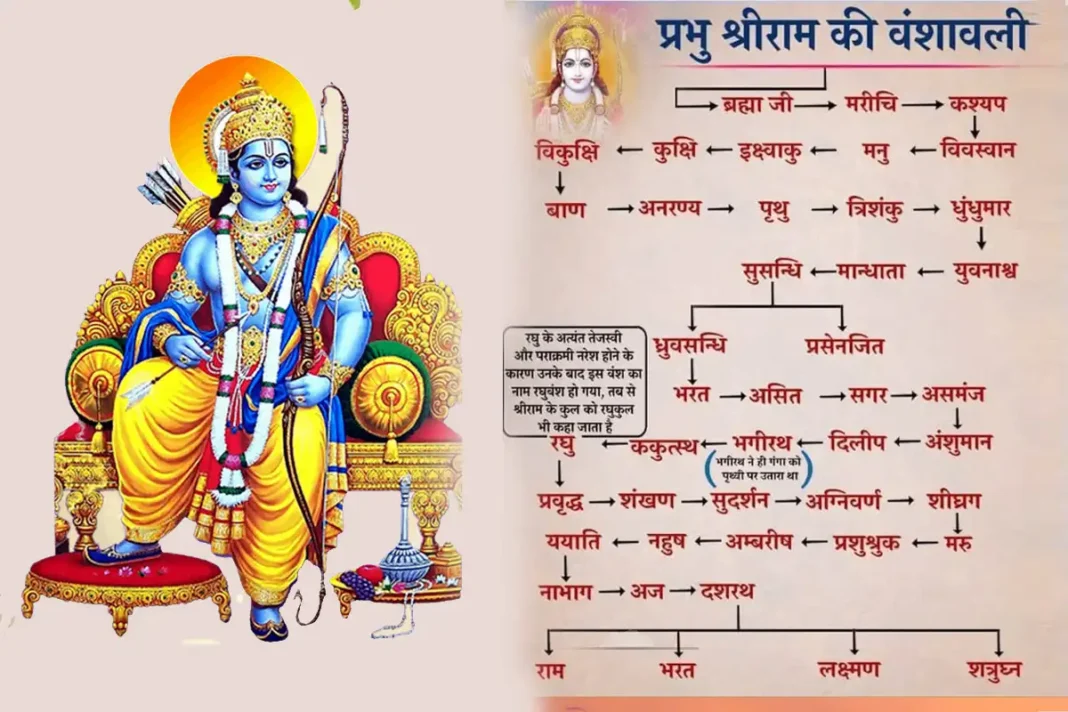 प्रभु श्रीराम की वंशावली
ब्रह्मा जी मरीचि कश्यप
विकुक्षि कुक्षि इक्ष्वाकु मनु विवस्वान
बाण अनरण्य पृथु त्रिशंकु धुंधुमार
सुसन्धि मान्धाता युवनाश्व
ध्रुवसन्धि प्रसेनजित
रघु के अत्यंत तेजस्वी
और पराक्रमी नरेश होने के
कारण उनके बाद इस वंश का
नाम रघुवंश हो गया, तब से
श्रीराम के कुल को रघुकुल
भी कहा जाता है
भरत असित सगर असमंज
रघु ककुत्स्थ भगीरथ दिलीप अंशुमान
भगीरथ ने ही गंगा को
पृथ्वी पर उतारा था
प्रवृद्ध शंखण सुदर्शन अग्निवर्ण शीघ्रग
ययाति नहुष अम्बरीष प्रशुश्रुक मरु
नाभाग अज दशरथ
राम भरत लक्ष्मण शत्रुघ्न